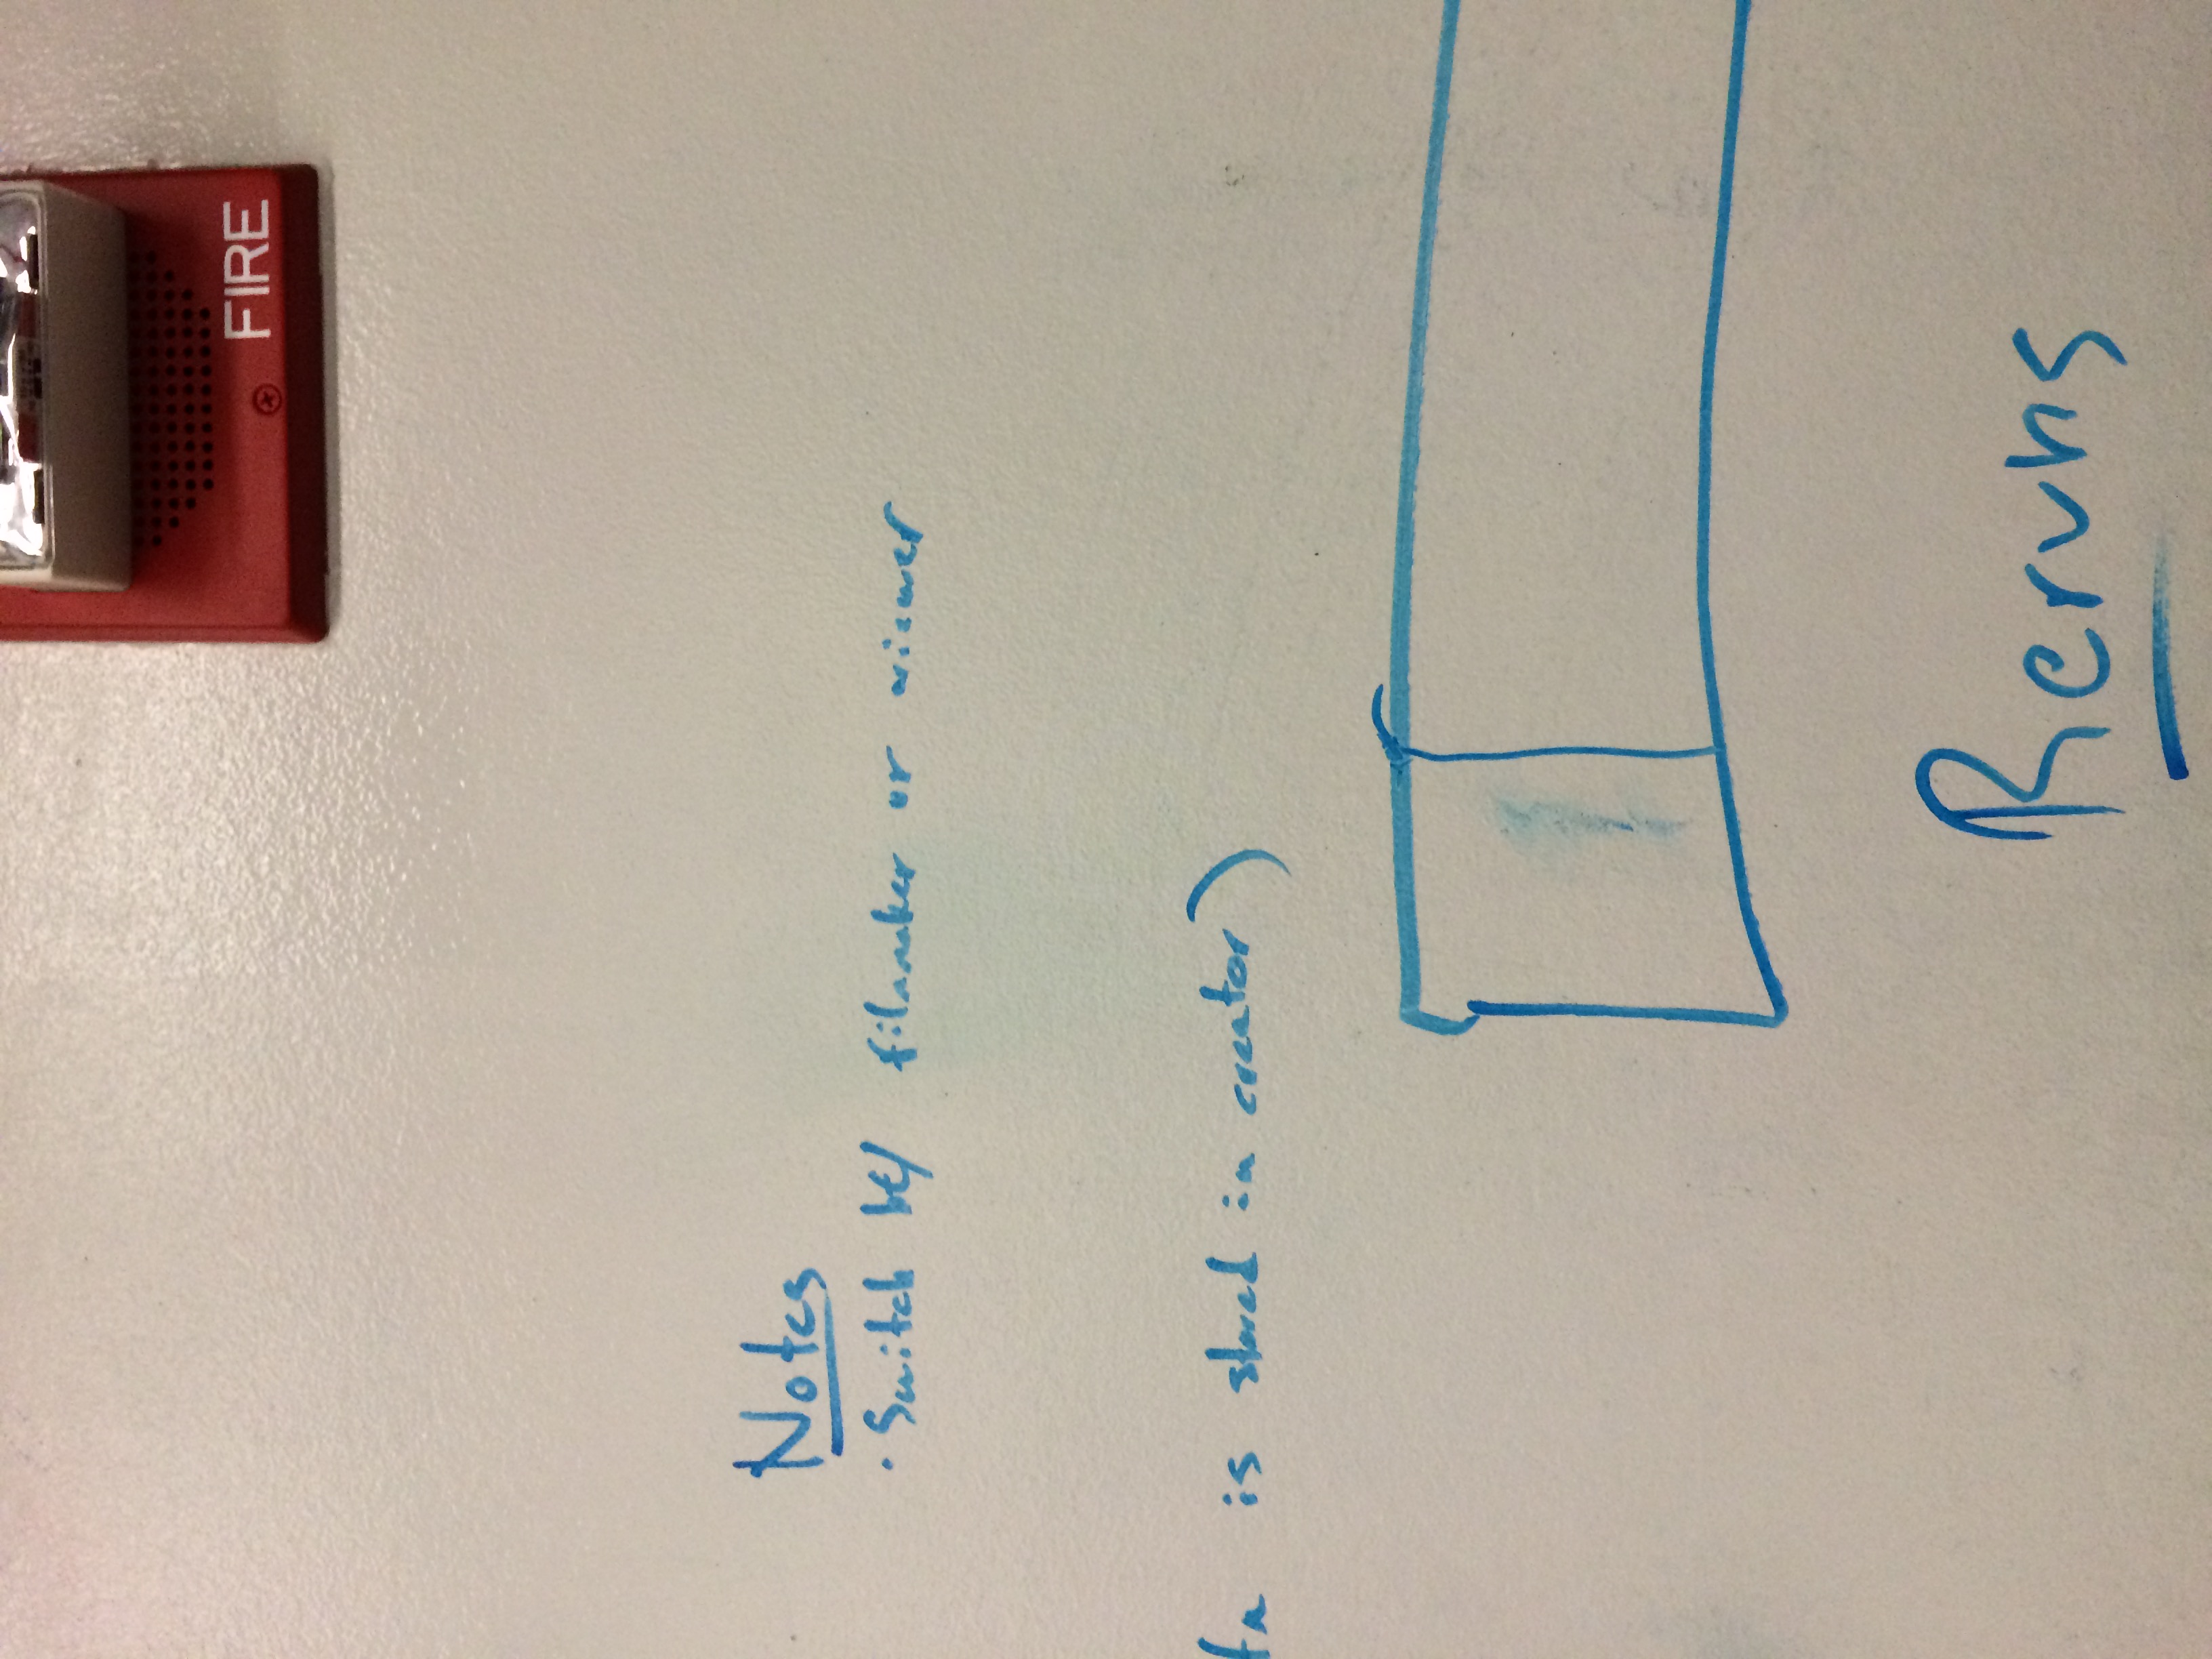 FIRE
Notes
· Switch bt/ filmmaker or viewer
ta is stored in creator)
Reruns